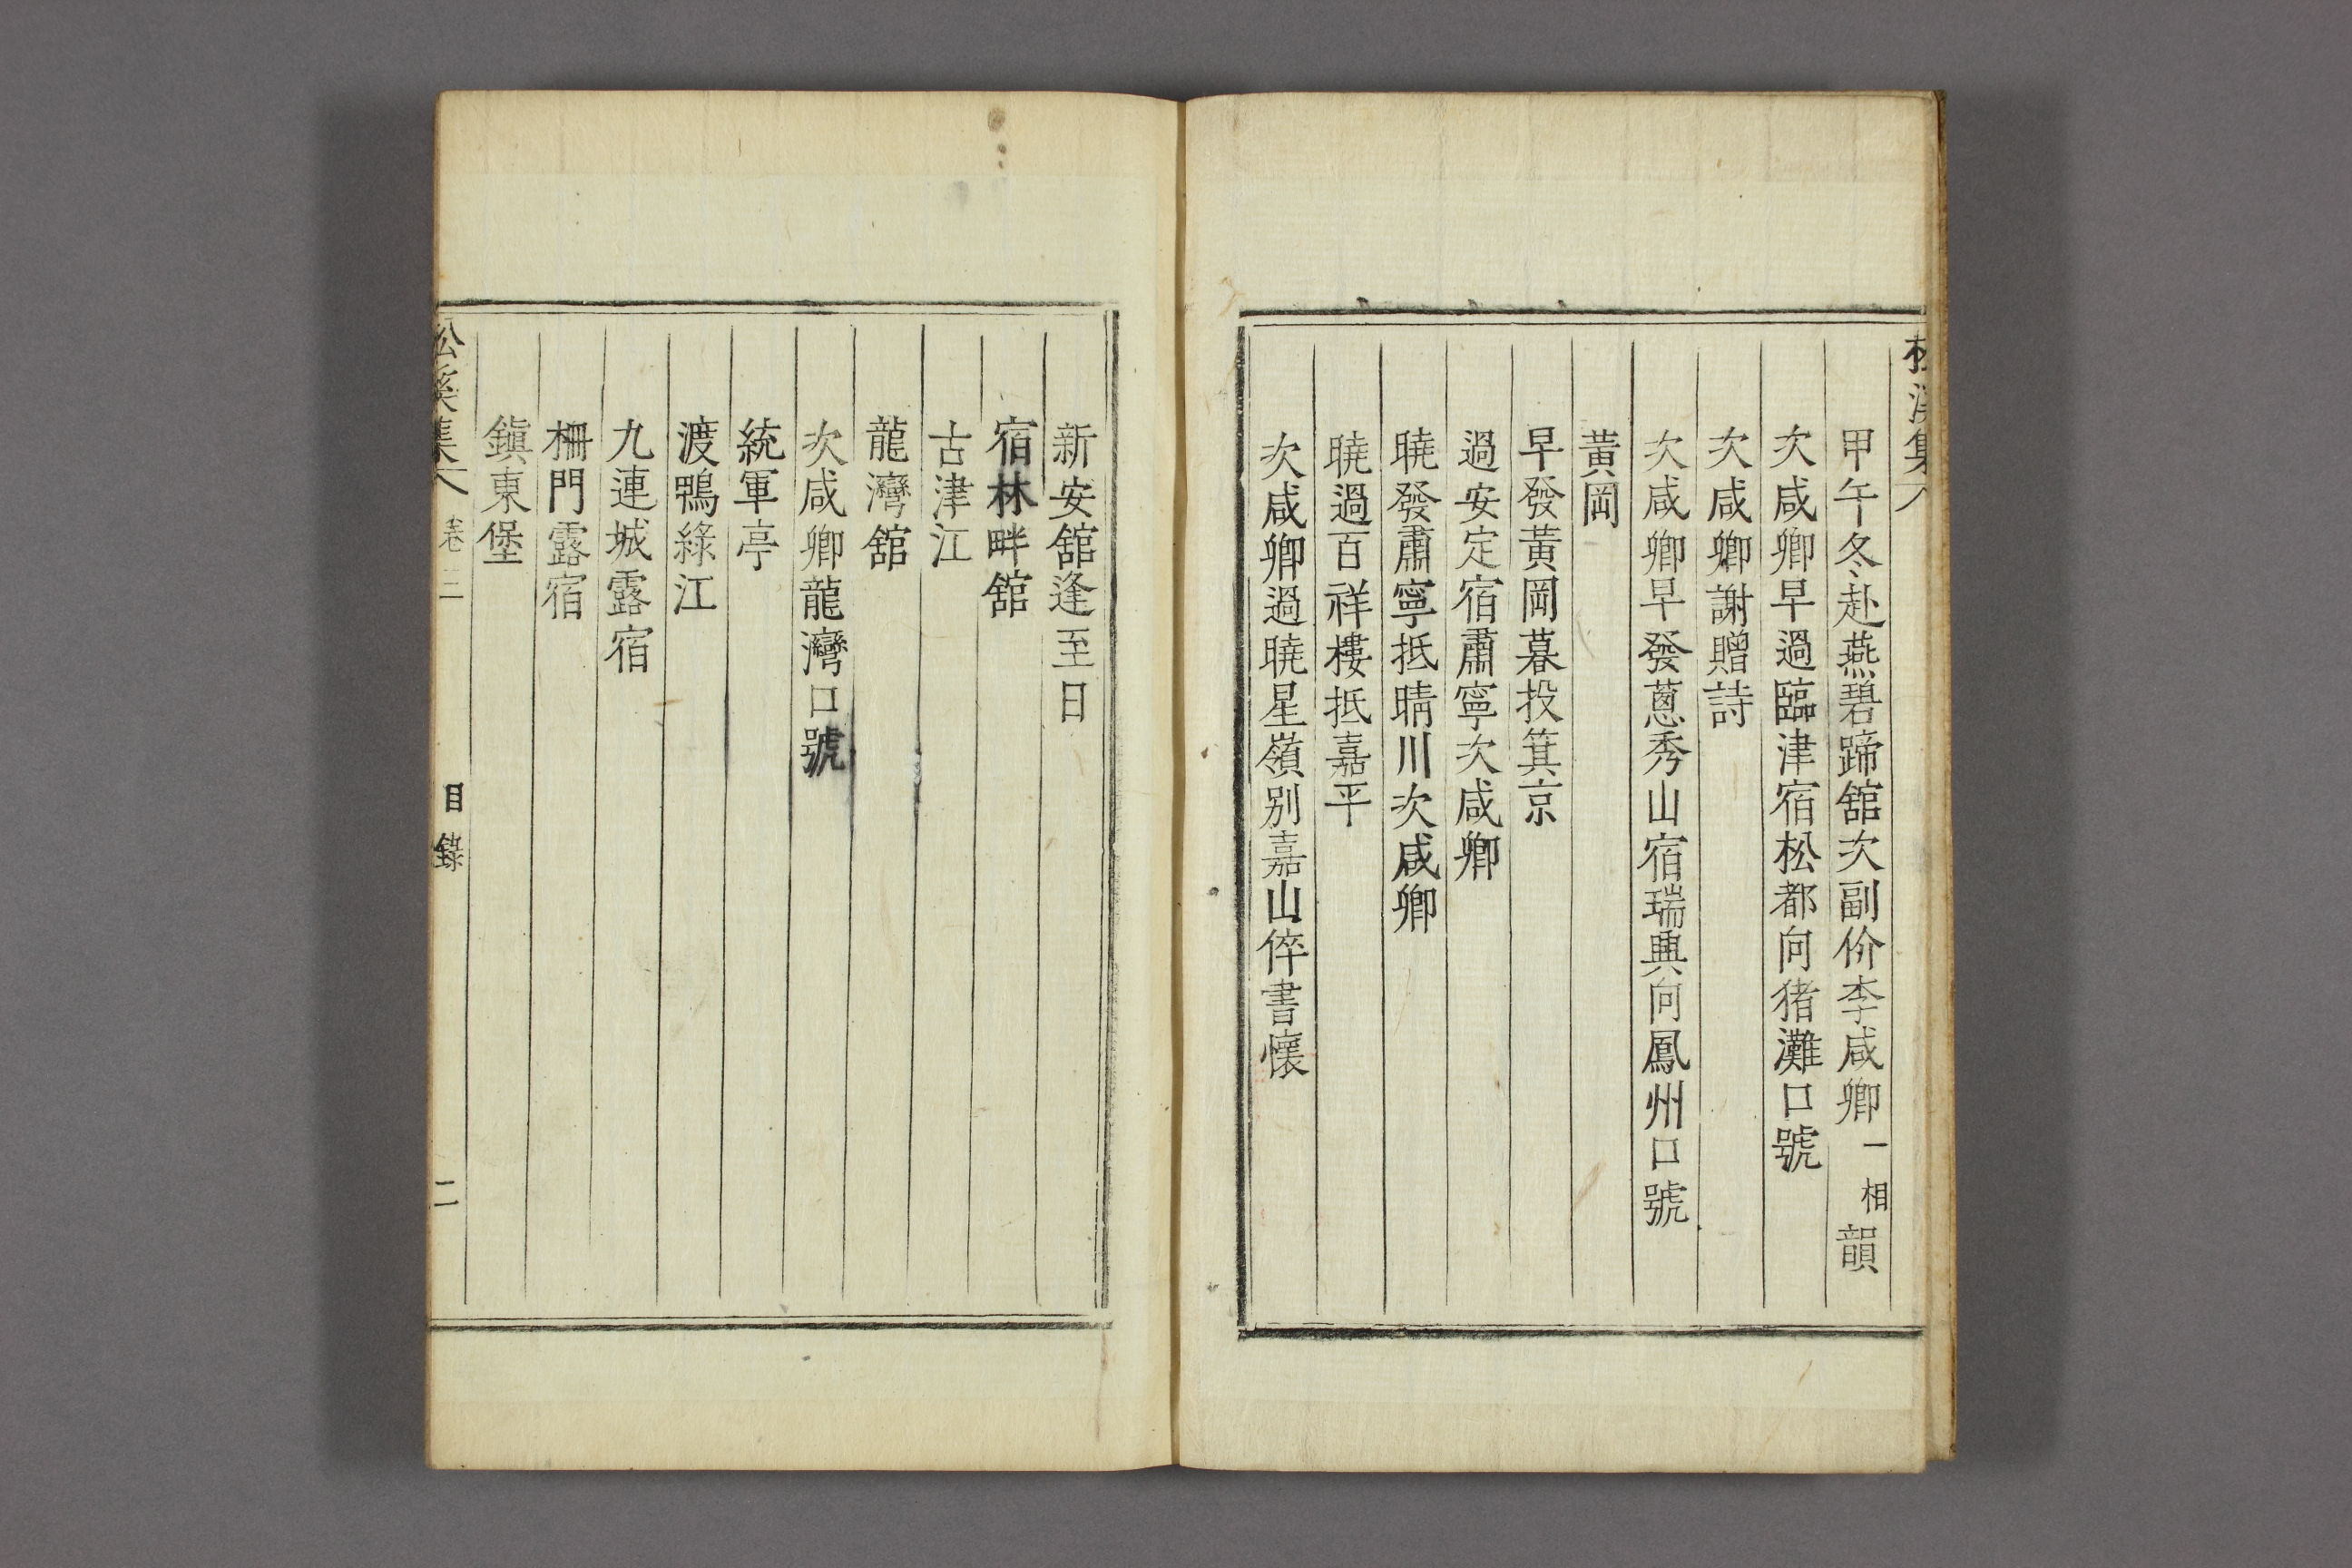 甲午冬赴燕碧蹄舘次副价李咸卿一相韻
次咸卿早過臨津宿松都向猪灘口號
次咸卿謝贈詩
次咸卿早發蔥秀山宿瑞興向鳳州口號
黃岡
早發黃岡暮投箕京
過安定宿肅寧次咸卿
曉發肅寧抵晴川次咸卿
曉過百祥樓抵嘉平
次咸卿過曉星嶺別嘉山倅書懷
新安舘逢至日
宿林畔舘
古津江
龍灣舘
次咸卿龍灣口號
統軍亭
渡鴨綠江
九連城露宿
柵門露宿
鎮東堡
松溪集 卷三 目錄 二